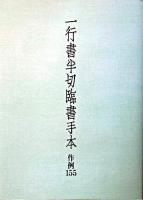 一行書半切臨書手本
作例
155